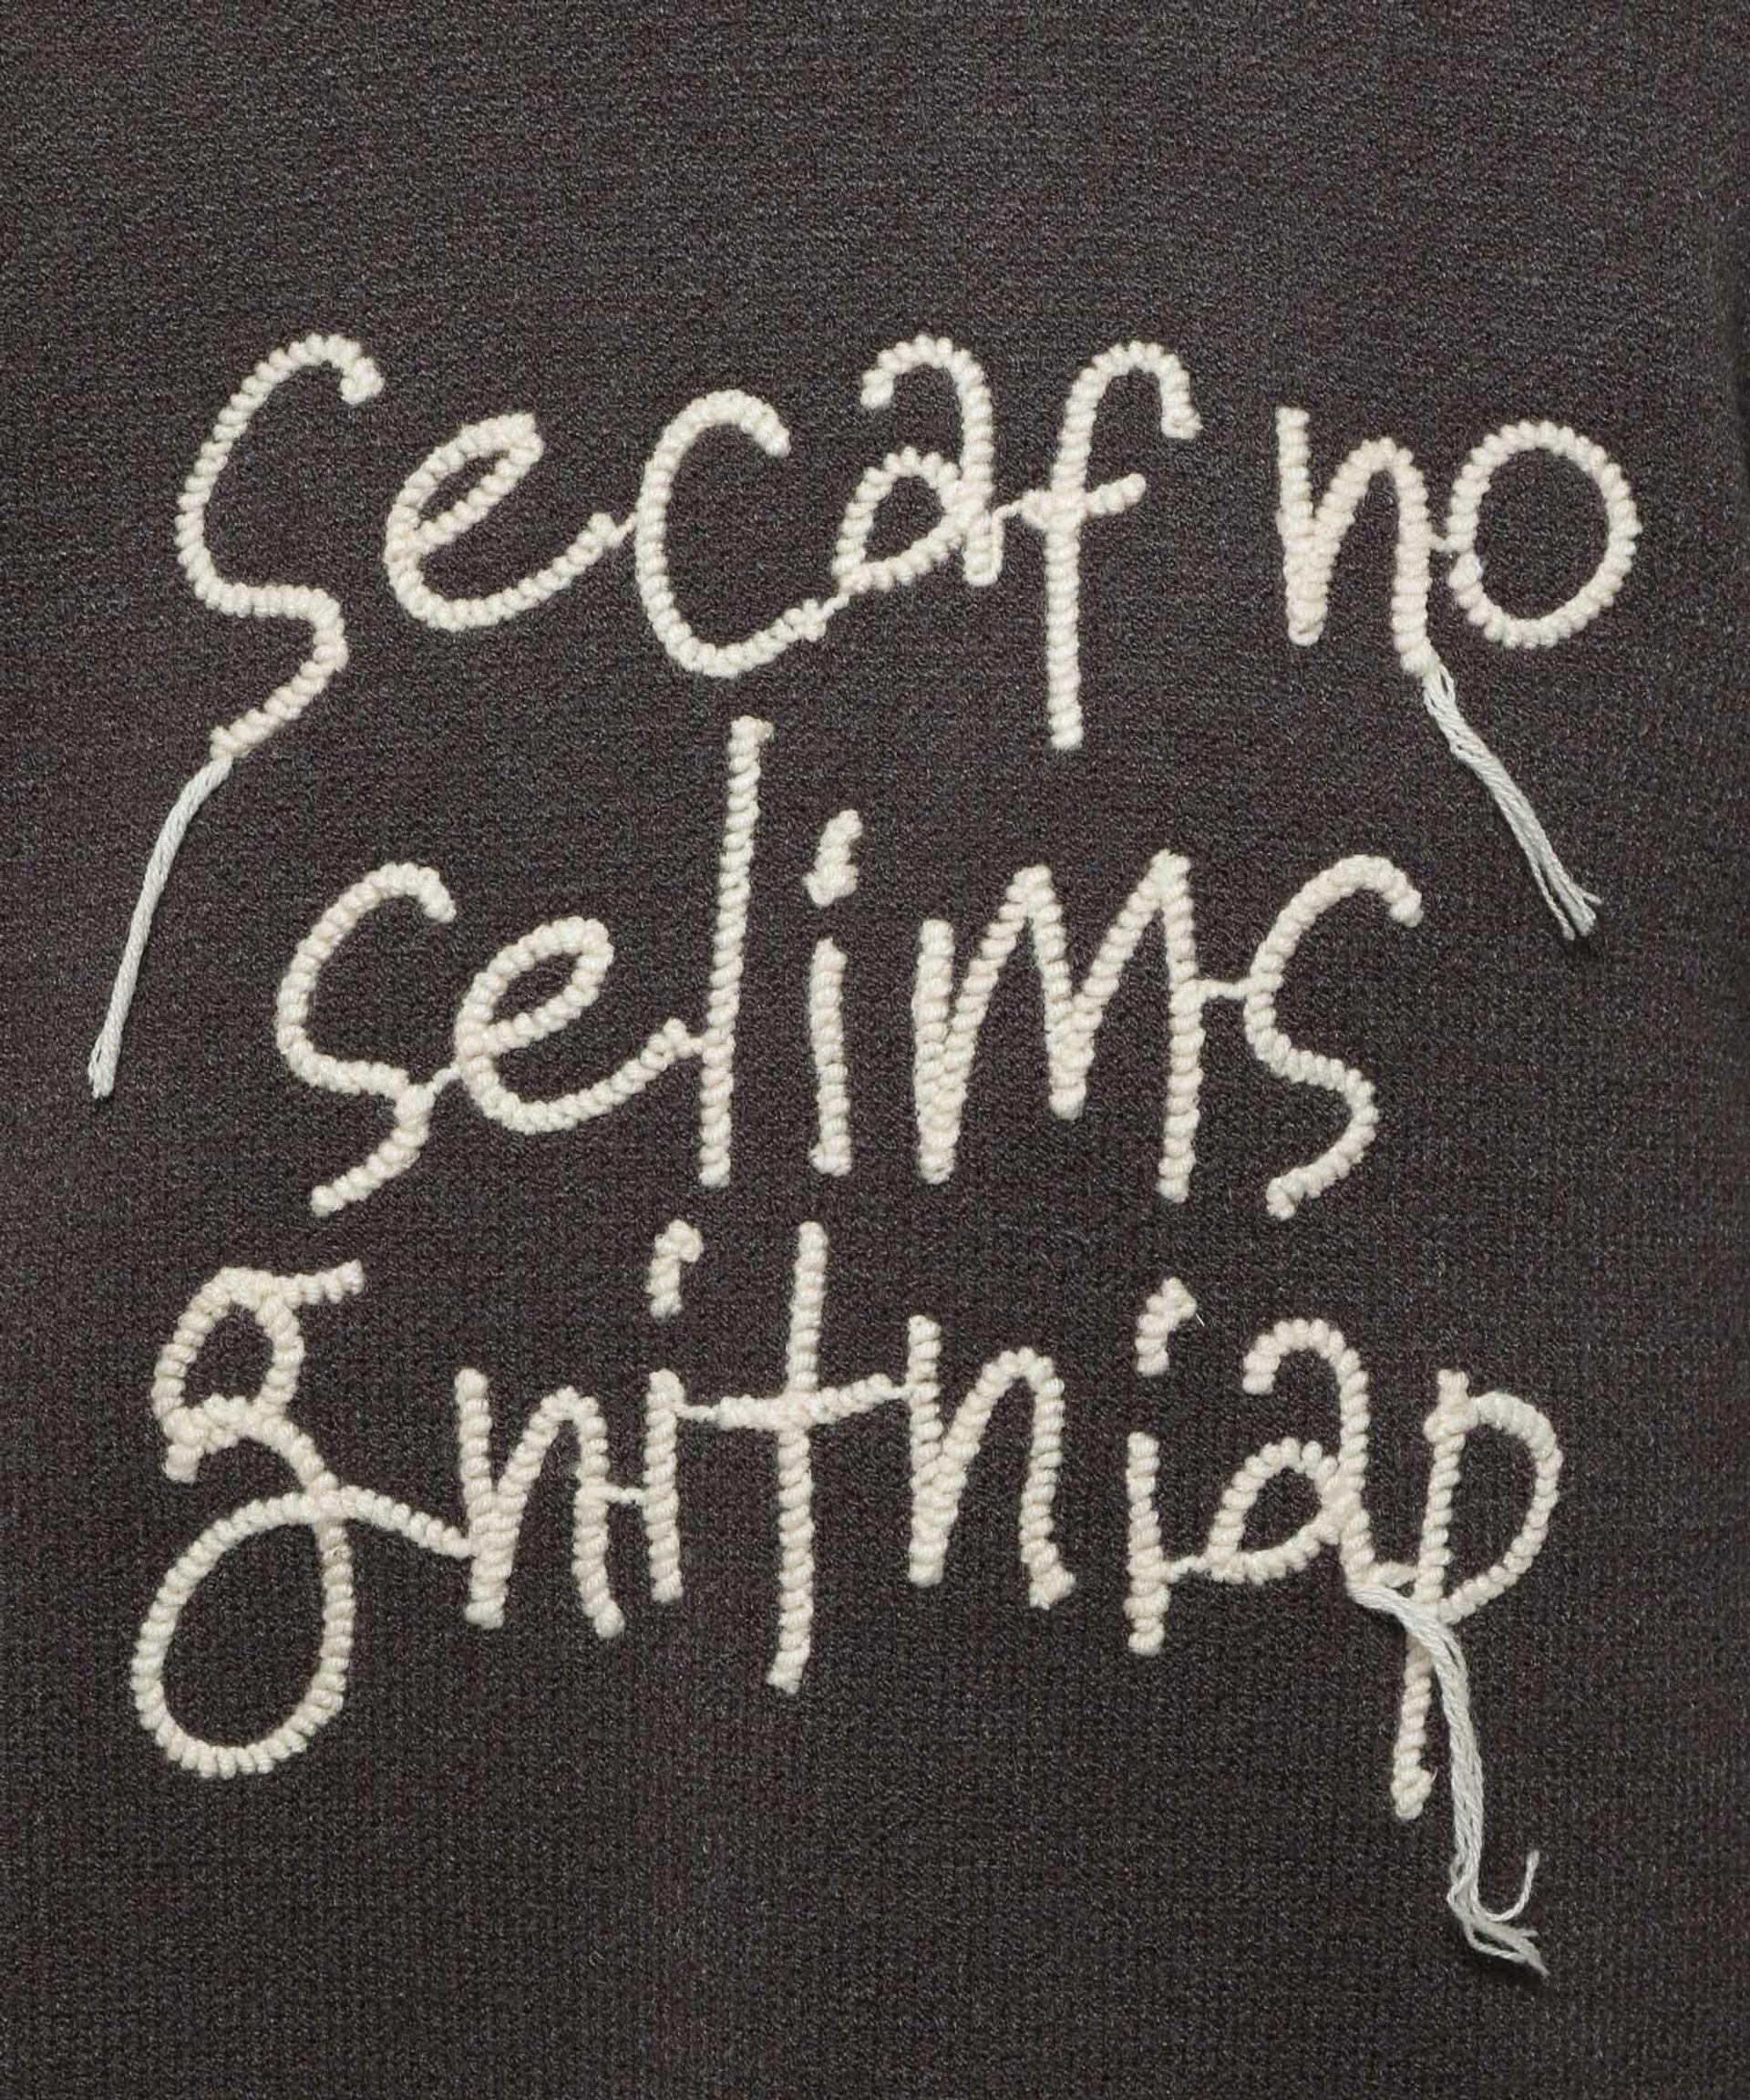 secaf no
selims
gnitniap